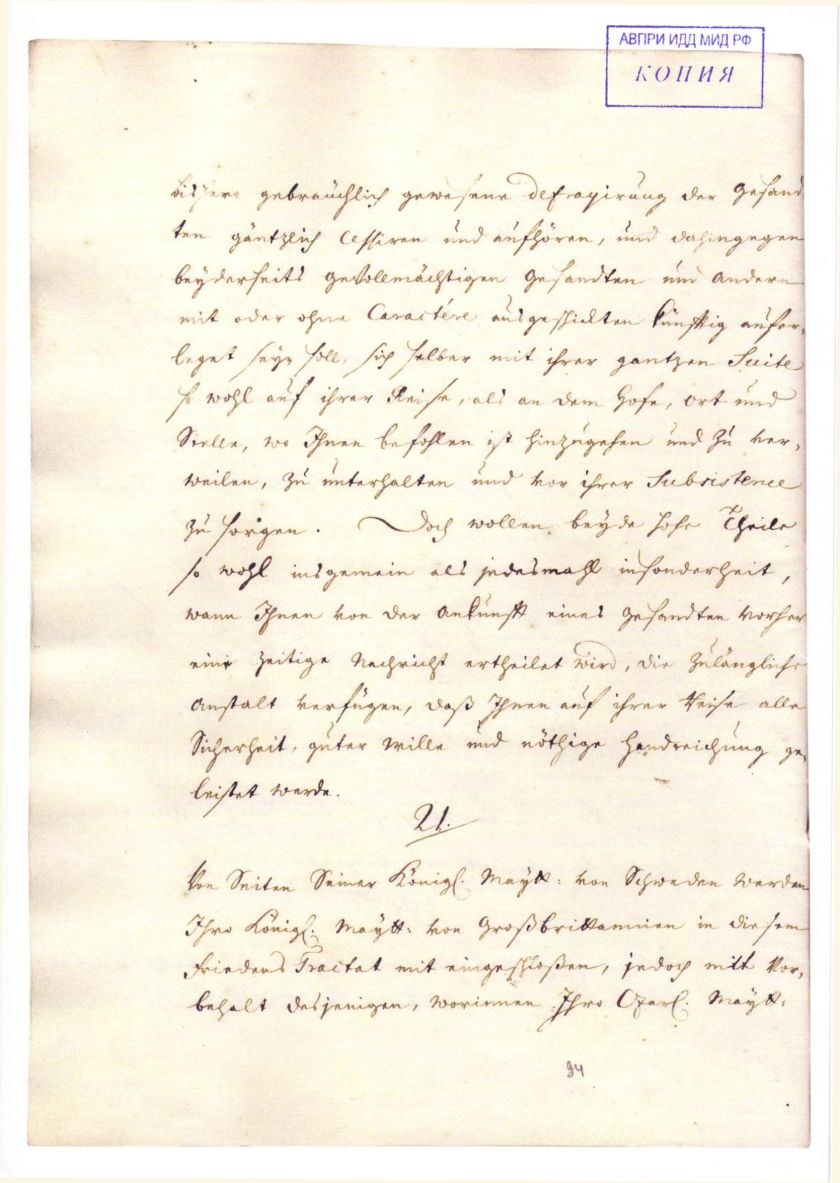 АВПРИ ИДД МИД РФ
КОПИЯ
bishero gebräuchlich gewesene defrayirung der Gesand
ten gäntzlich Cessiren und aufhören, und dahingegen
beyderseits gevollmächtigen Gesandten und andern
mit oder ohne Caractére ausgeschickten künfftig aufer-
leget seyn soll, sich selber mit ihrer gantzen Suite
so wohl auf ihrer Reise, als an dem Hofe, ort und
Stelle, wo Ihnen befohlen ist hinzugehen und zu ver-
weilen, zu unterhalten und vor ihrer Subsistence
zu sorgen. Doch wollen beyde hohe Theile
so wohl insgemein als jedesmahl insonderheit,
wann Ihnen von der ankunfft eines Gesandten vorher
eine zeitige Nachricht ertheilet wird, die zulängliche
Anstalt verfügen, daß Ihnen auf ihrer Reise alle
Sicherheit, guter wille und nöthige Handreichung ge-
leistet werde.
21.
Von Seiten Seiner Königl. Maytt: von Schweden werden
Ihro Königl. Maytt: von Großbrittannien in diesem
Friedens Tractat mit eingeschloßen, jedoch mit Vor-
behalt desjenigen, worinnen Ihro Czarl. Maytt:
34